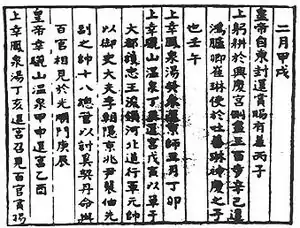 二月甲戌
皇帝自東封還賞賜有差丙子
上躬耕於興慶宮側盡三百步辛己遣
鴻臚卿崔琳使於吐蕃琳神慶之子
也壬午
上幸鳳泉湯癸未還京師五月丁卯
上幸驪山温泉丁亥還宮戊寅以單子
大都護忠王浚領河北道行軍元帥
以御史大夫李朝隱京兆尹裴伷先
副之帥十八總管以討奚契丹命與
百官相見於光順門庚辰
皇帝幸驪山温泉甲申還宮乙酉
上幸鳳泉湯丁亥還宮召見百官賞賜